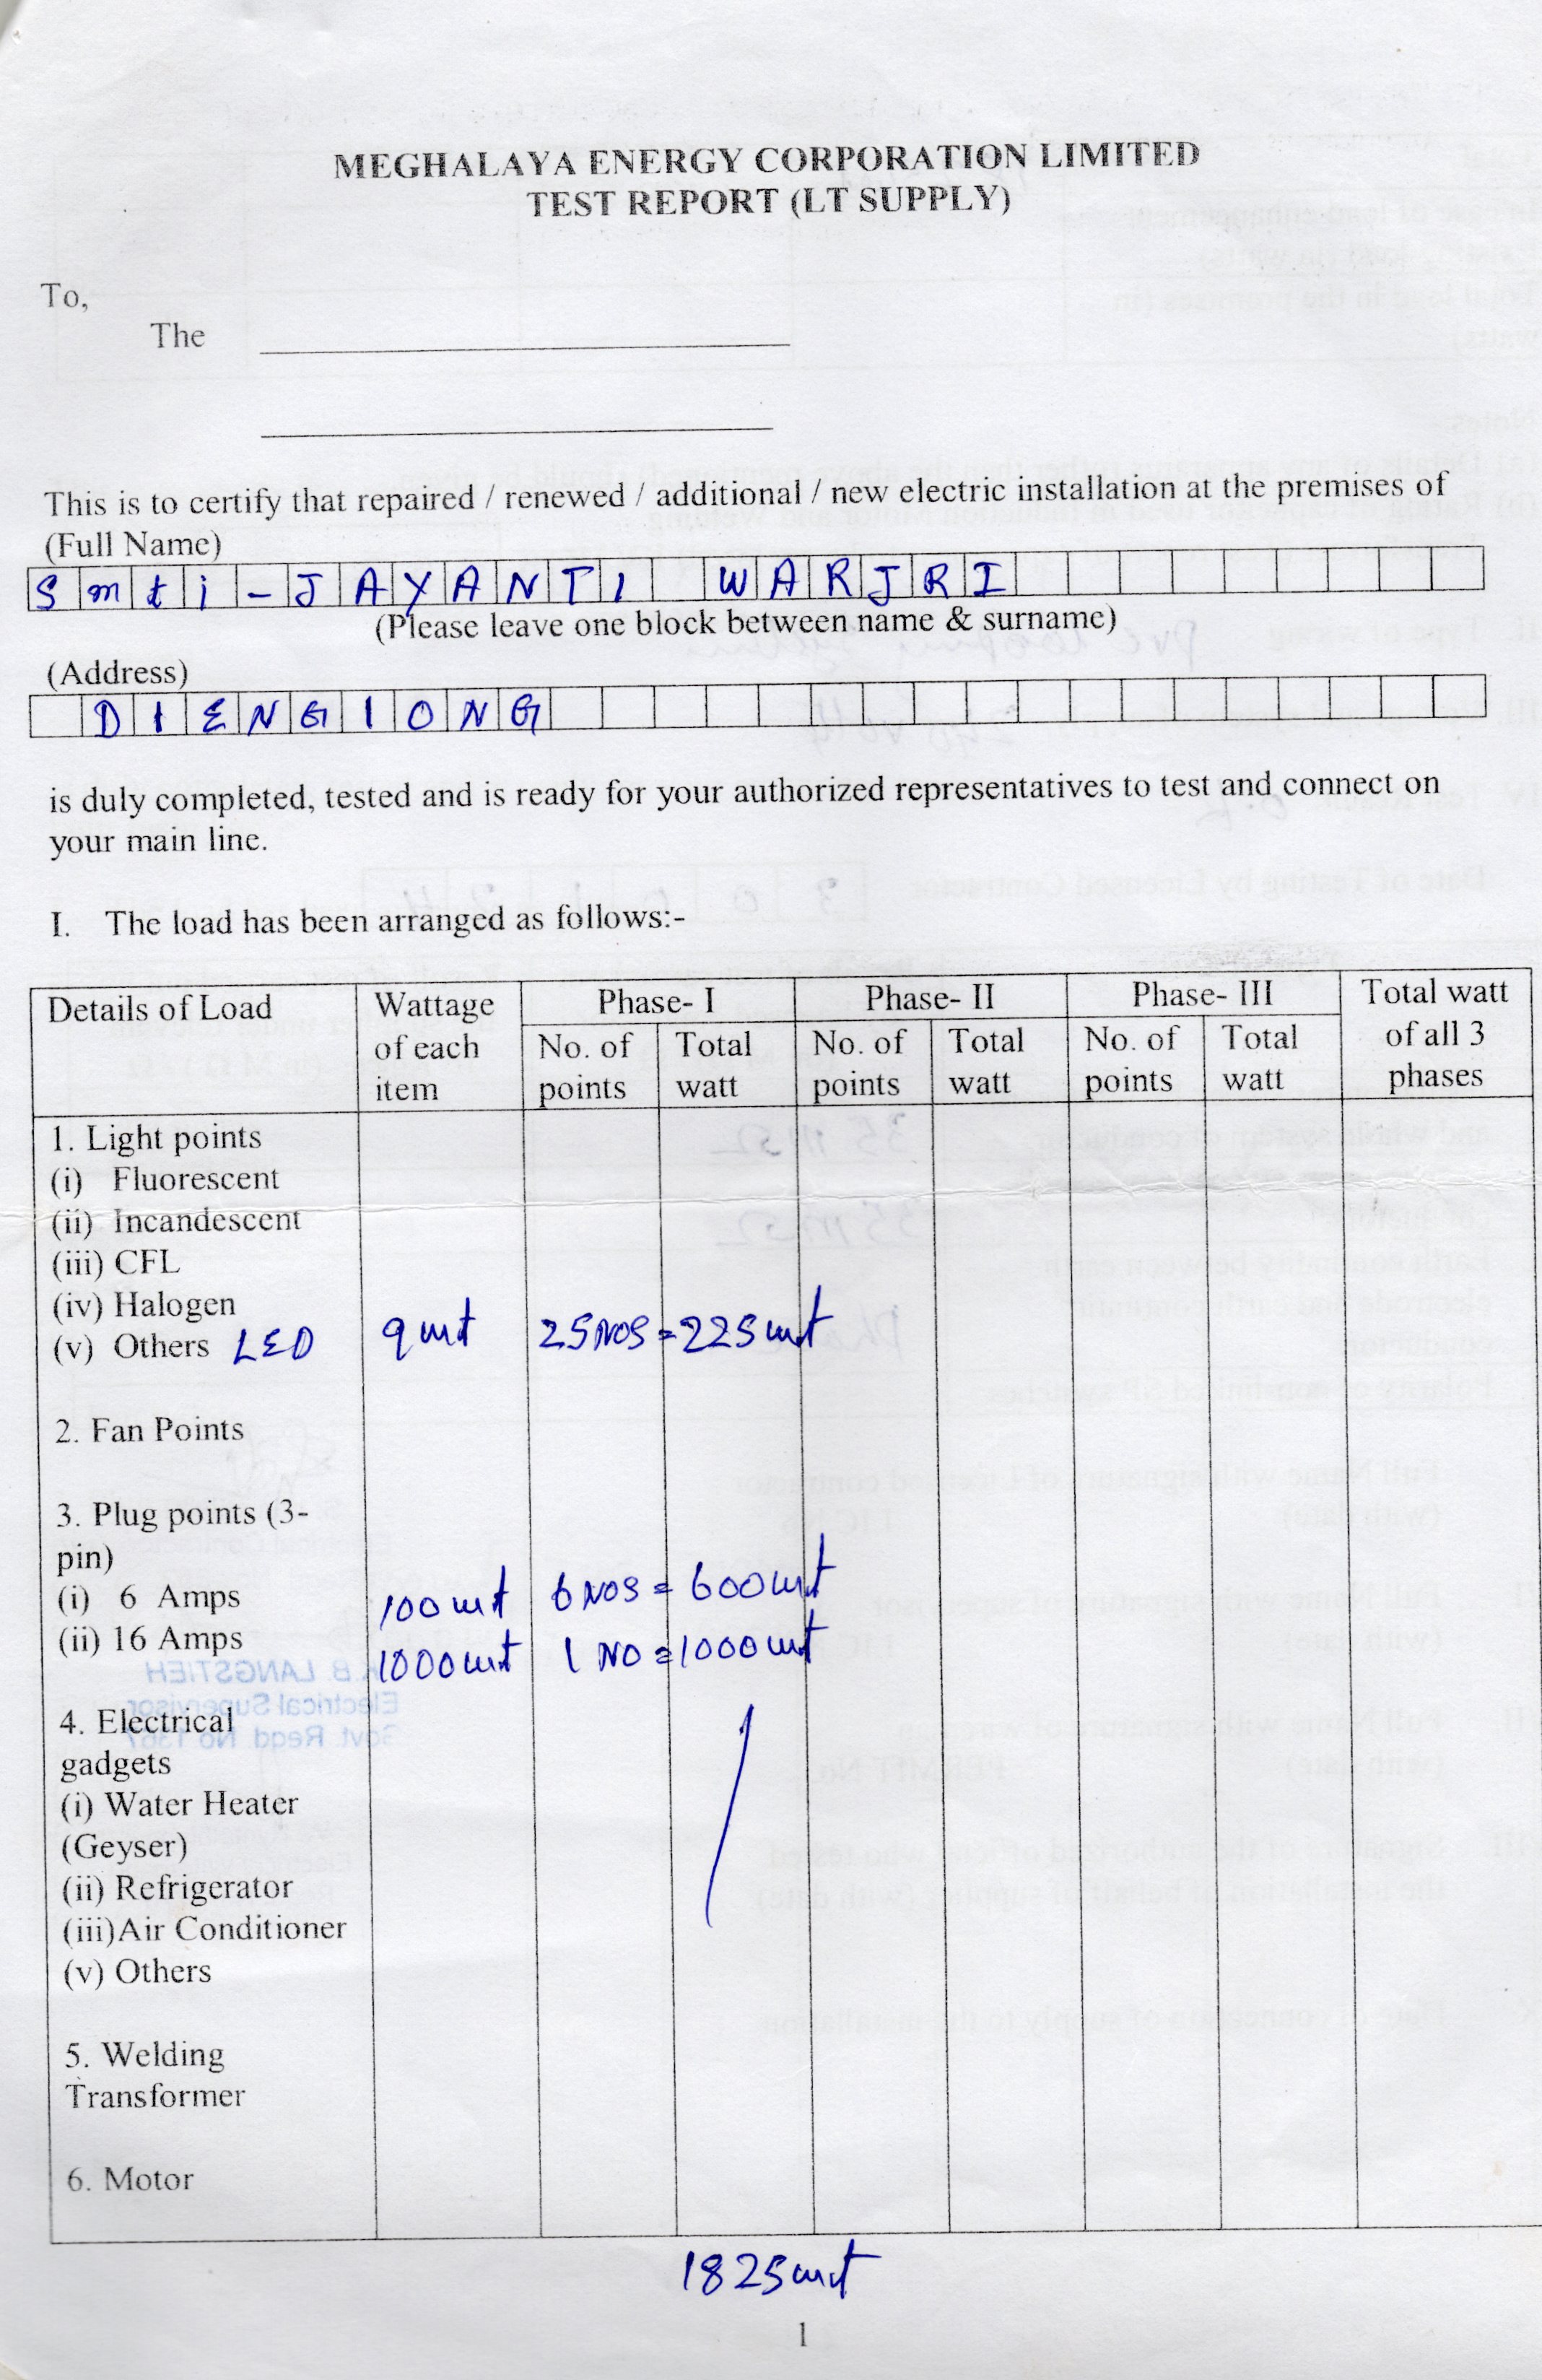 MEGHALAYA ENERGY CORPORATION LIMITED
TEST REPORT (LT SUPPLY)
To,
The
This is to certify that repaired / renewed / additional / new electric installation at the premises of
(Full Name)
Smti-JAYANTI WARJRI
(Please leave one block between name & surname)
(Address)
DIENGIONG
is duly completed, tested and is ready for your authorized representatives to test and connect on
your main line.
I. The load has been arranged as follows:-
Details of Load Wattage of each item Phase- I Phase- II Phase- III Total watt of all 3 phases
No. of points Total watt No. of points Total watt No. of points Total watt
1. Light points
(i) Fluorescent
(ii) Incandescent
(iii) CFL
(iv) Halogen
(v) Others LED 9wt 25NOS=225wt
2. Fan Points
3. Plug points (3-
pin)
(i) 6 Amps 100wt 6NOS=600wt
(ii) 16 Amps 1000wt 1 NO=1000wt
4. Electrical
gadgets
(i) Water Heater
(Geyser)
(ii) Refrigerator
(iii)Air Conditioner
(v) Others
5. Welding
Transformer
6. Motor
1825wt
1